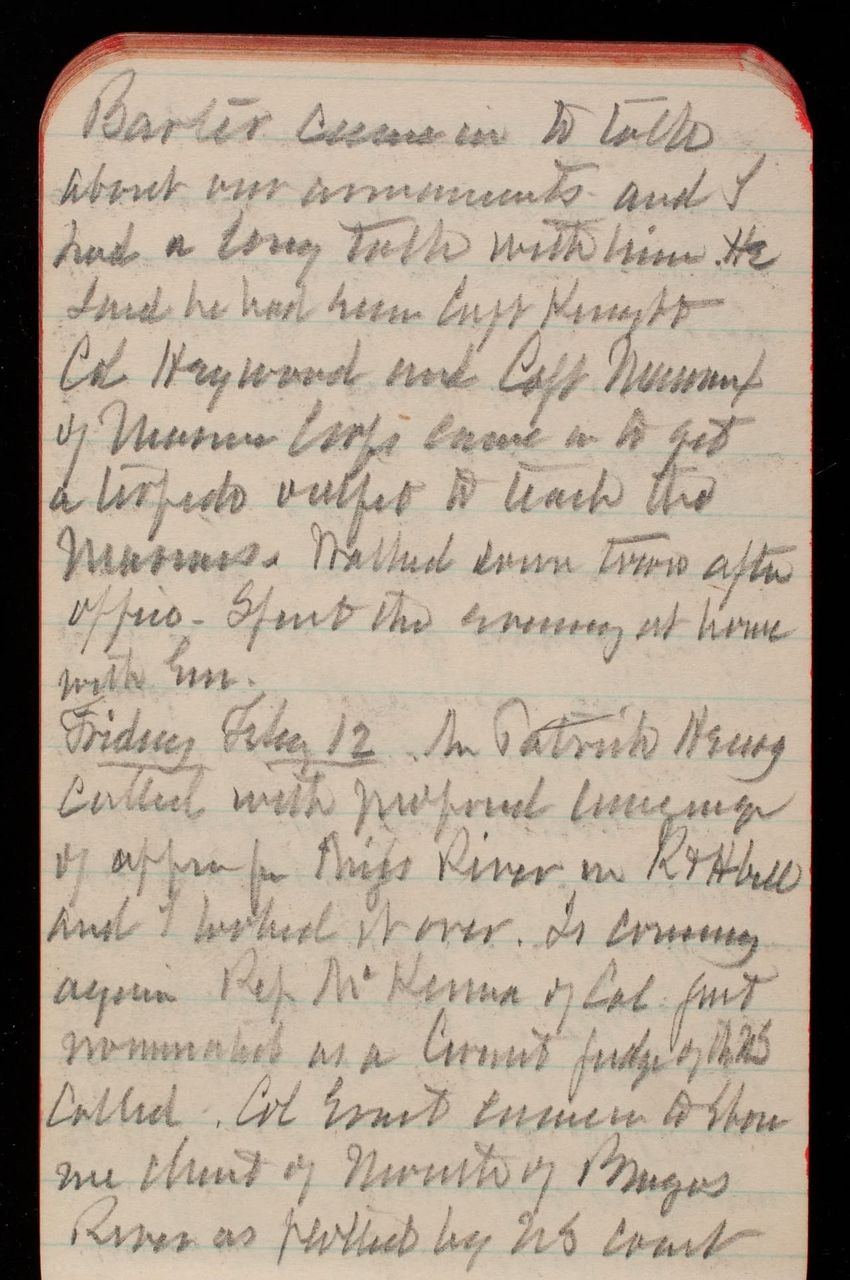 Barter came in to talk
about our armaments and I
had a long talk with him. He
said he had seen Capt Knight
Col Heywood and Capt
of Marine Corps came in to get
a torpedo outfit to teach the
Marines. Walked down town after
office - Spent the evening at home
with Em.
Friday Feby 12. Mr Patrick Henry
called with proposed language
of appro for River in R & H bill
and I looked it over. Is coming
again Rep McKenna of Cal just
nominated as a Circuit judge of the US
Called. Col Ernst came in to show
me chart of Mouth of Brazos
River as plotted by US Coast